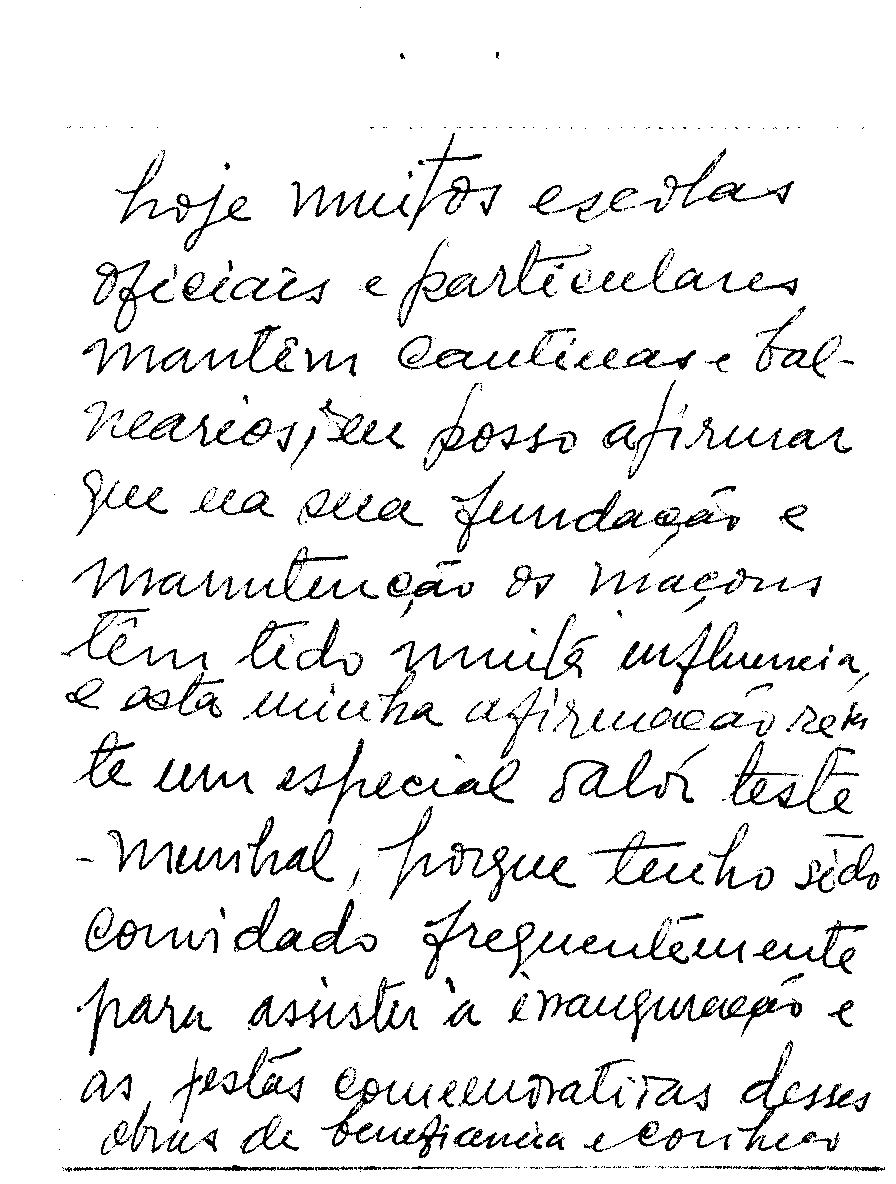 hoje muitos escolas
oficiais e particulares
mantêm cantinas e bal-
nearios, eu posso afirmar
que na sua fundação e
manutenção os maçons
têm tido muita influencia,
e esta minha afirmação
te um especial valôr teste
-munhal, porque tenho sido
convidado frequentemente
para assistir à inauguração e
as festas comemorativas desses
obras de beneficencia e conheço